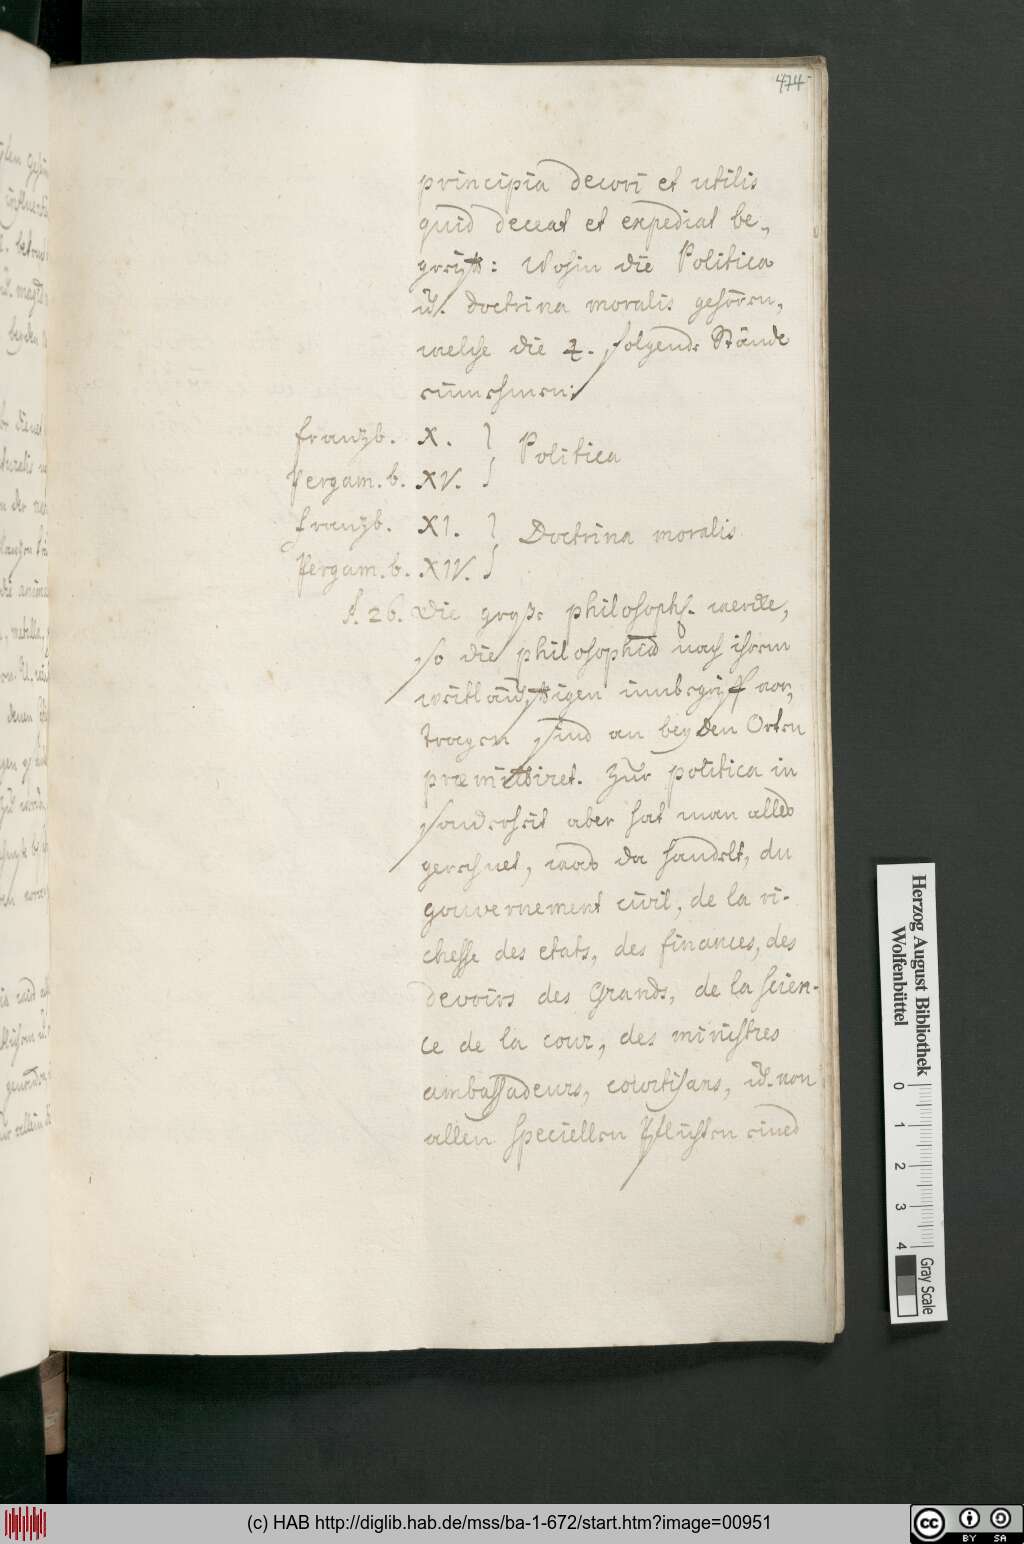 474
principia decori et utilis
quid deceat et expediat be„
greifft: Wohin die Politica
ud. doctrina moralis gehören,
welche die 2. folgende Stände
einnehmen:
Frantzb. X. } Politica
Pergam. b. XV. }
Frantzb. XI. } Doctrina moralis
Pergam. b. XIV. }
§. 26. Die große philosoph. wercke,
so die philosophia nach ihrem
weitläufftigen innbegriff vor„
tragen sind an beyden Orten
præmittiret. Zur politica in
sonderheit aber hat man alles
gerechnet, was da handelt, du
gouvernement civil, de la ri-
chesse des etats, des finances, des
devoirs des Grands, de la scien-
ce de la cour, des ministres
ambassadeurs, courtisans, ud. von
allen speciellen Pflichten eines
Herzog August Bibliothek
Wolfenbüttel
0 1 2 3 4
Gray Scale
(c) HAB http://diglib.hab.de/mss/ba-1-672/start.htm?image=00951
cc BY SA